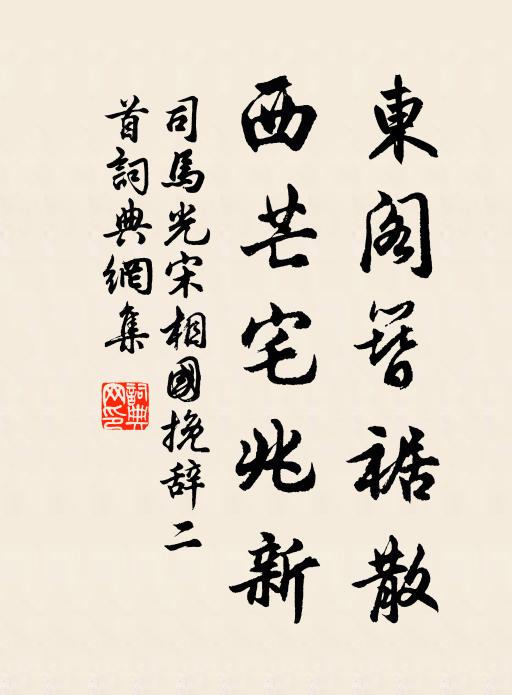 東阁簪裾散
西芒宅兆新
司馬光宋相國挽辞二
首詞典網集
詞典
网印